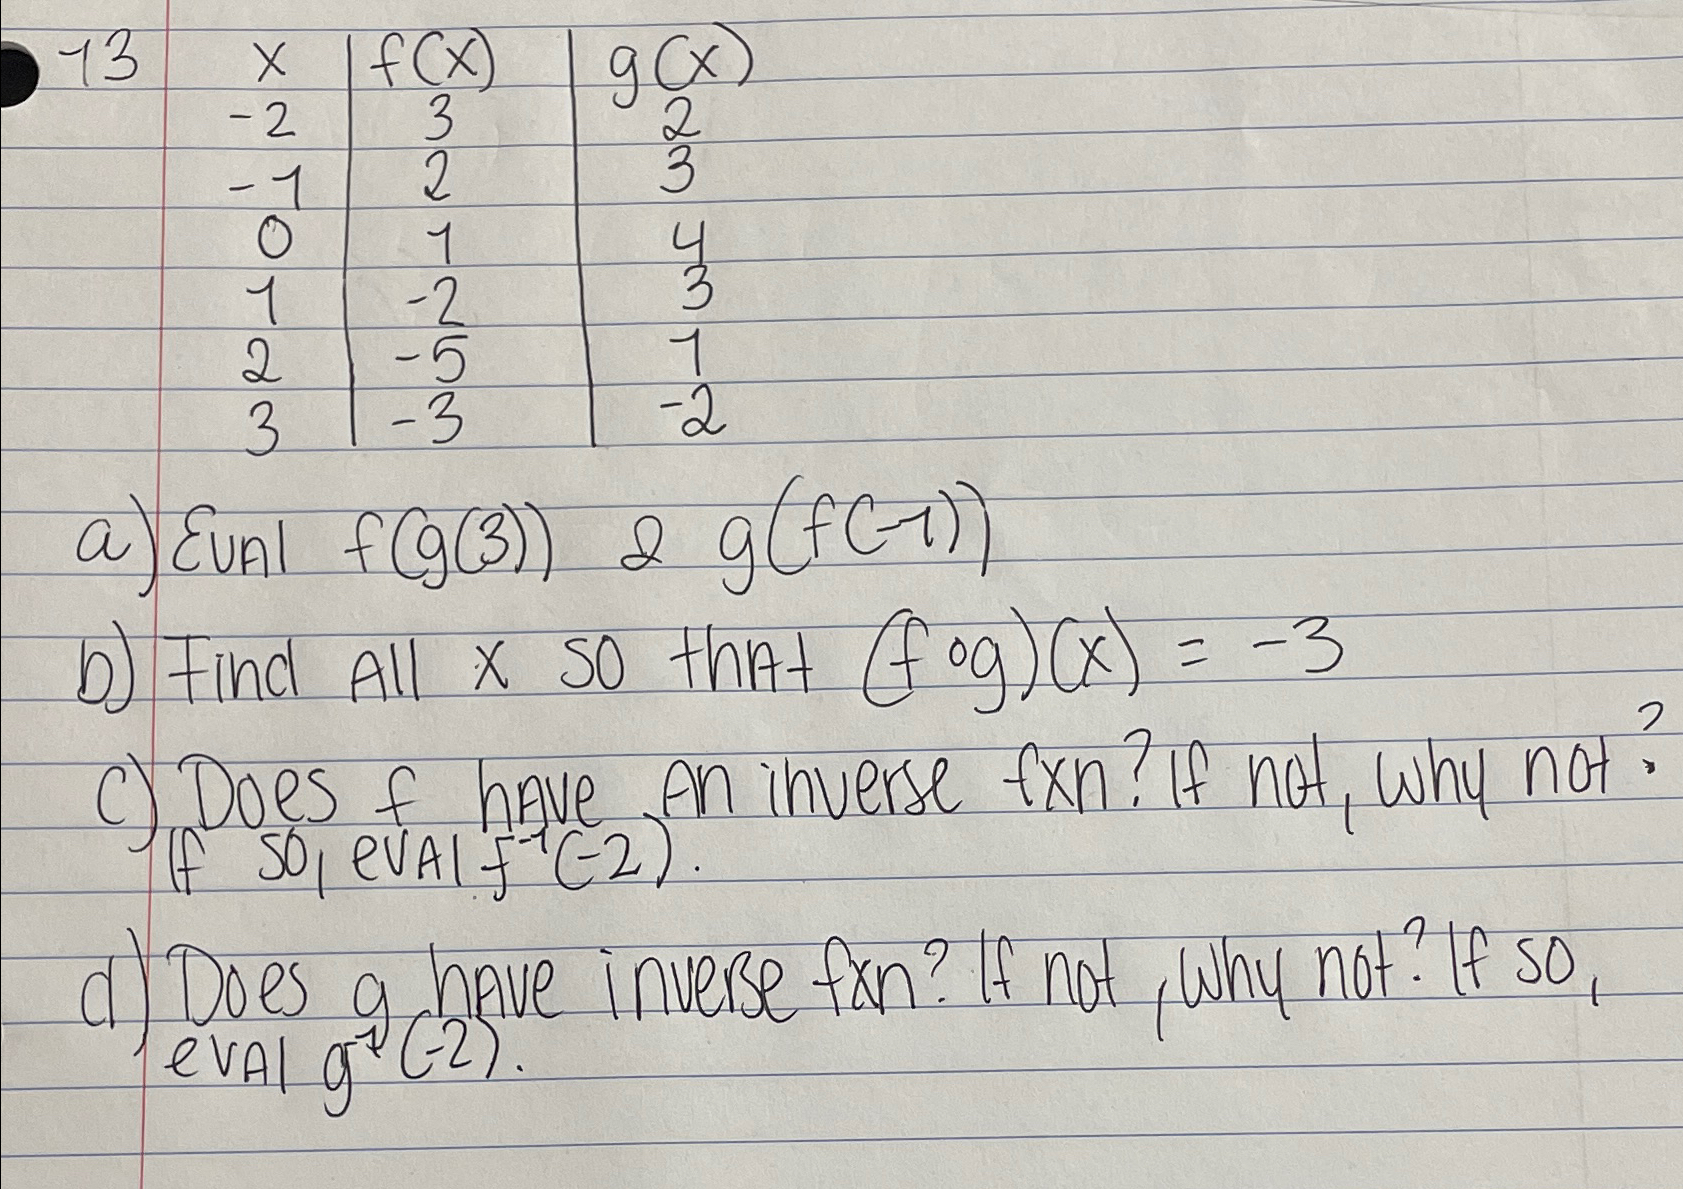 13 x f(x) g(x)
-2 3 2
-1 2 3
0 1 4
1 -2 3
2 -5 1
3 -3 -2
a) Eval f(g(3)) & g(f(-1))
b) Find All x so that (f∘g)(x) = -3
c) Does f have An inverse fxn? If not, why not?
If so, eval f⁻¹(-2).
d) Does g have inverse fxn? If not, why not? If so,
eval g⁻¹(-2).